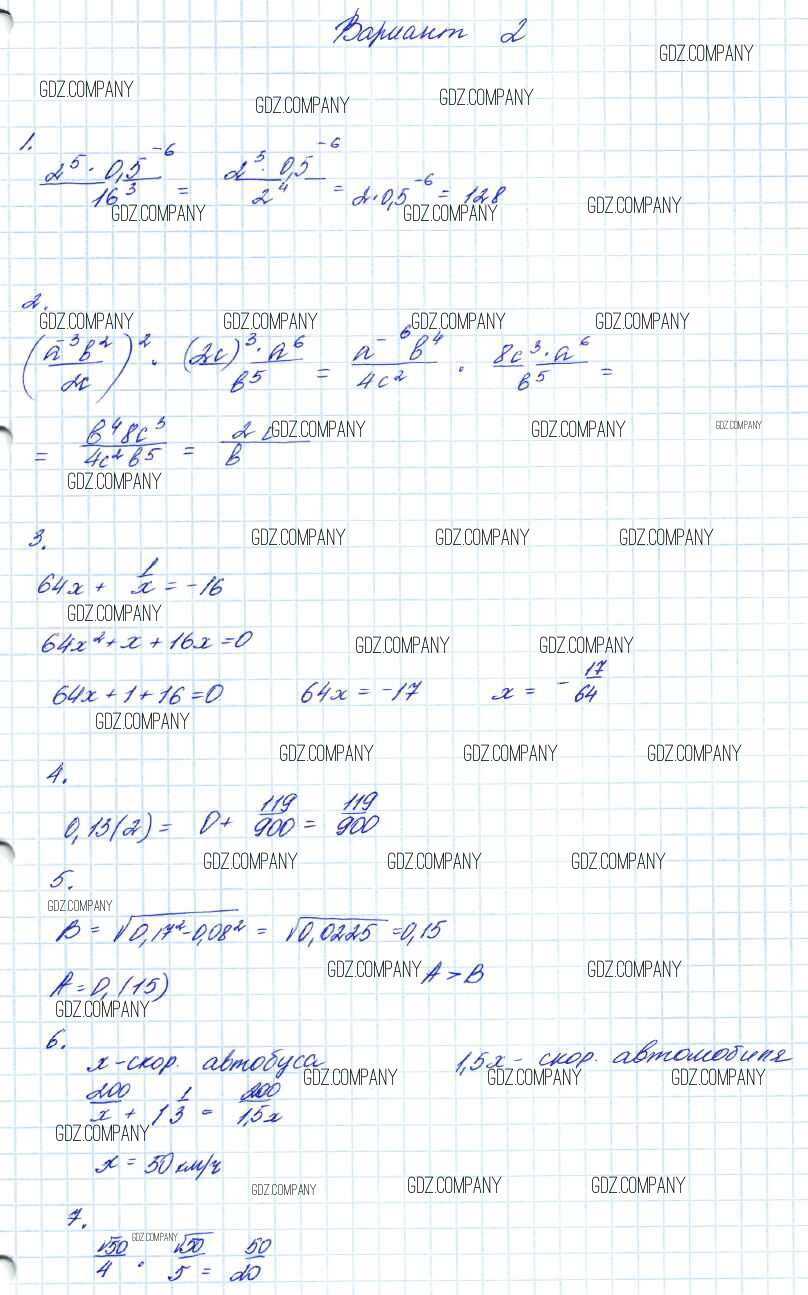 Вариант 2
GDZ.COMPANY
GDZ.COMPANY GDZ.COMPANY GDZ.COMPANY
1.
2⁵ · 0,5⁻⁶ / 16³ = 2⁵ · 0,5⁻⁶ / 2⁴ = 2·0,5⁻⁶ = 128
GDZ.COMPANY GDZ.COMPANY GDZ.COMPANY
2.
GDZ.COMPANY GDZ.COMPANY GDZ.COMPANY GDZ.COMPANY
(a⁻³b² / 2c)² · (2c)³ · a⁶ / b⁵ = a⁻⁶b⁴ / 4c² · 8c³ · a⁶ / b⁵ =
= b⁴8c³ / 4c²b⁵ = 2c / b
GDZ.COMPANY GDZ.COMPANY GDZ.COMPANY
GDZ.COMPANY
3.
GDZ.COMPANY GDZ.COMPANY GDZ.COMPANY
64x + 1/x = -16
GDZ.COMPANY
64x² + x + 16x = 0
GDZ.COMPANY GDZ.COMPANY
64x + 1 + 16 = 0 64x = -17 x = -17/64
GDZ.COMPANY
GDZ.COMPANY GDZ.COMPANY GDZ.COMPANY
4.
0,13(2) = 0 + 119/900 = 119/900
GDZ.COMPANY GDZ.COMPANY GDZ.COMPANY
5.
GDZ.COMPANY
B = √0,17² - 0,08² = √0,0225 = 0,15
GDZ.COMPANY GDZ.COMPANY
A = 0,(15) A > B
GDZ.COMPANY
6.
x - скор. автобуса 1,5x - скор. автомобиля
GDZ.COMPANY GDZ.COMPANY GDZ.COMPANY
200/x + 1 1/3 = 200/1,5x
GDZ.COMPANY
x = 50 км/ч
GDZ.COMPANY GDZ.COMPANY GDZ.COMPANY
7.
GDZ.COMPANY
√50/4 · √50/5 = 50/20